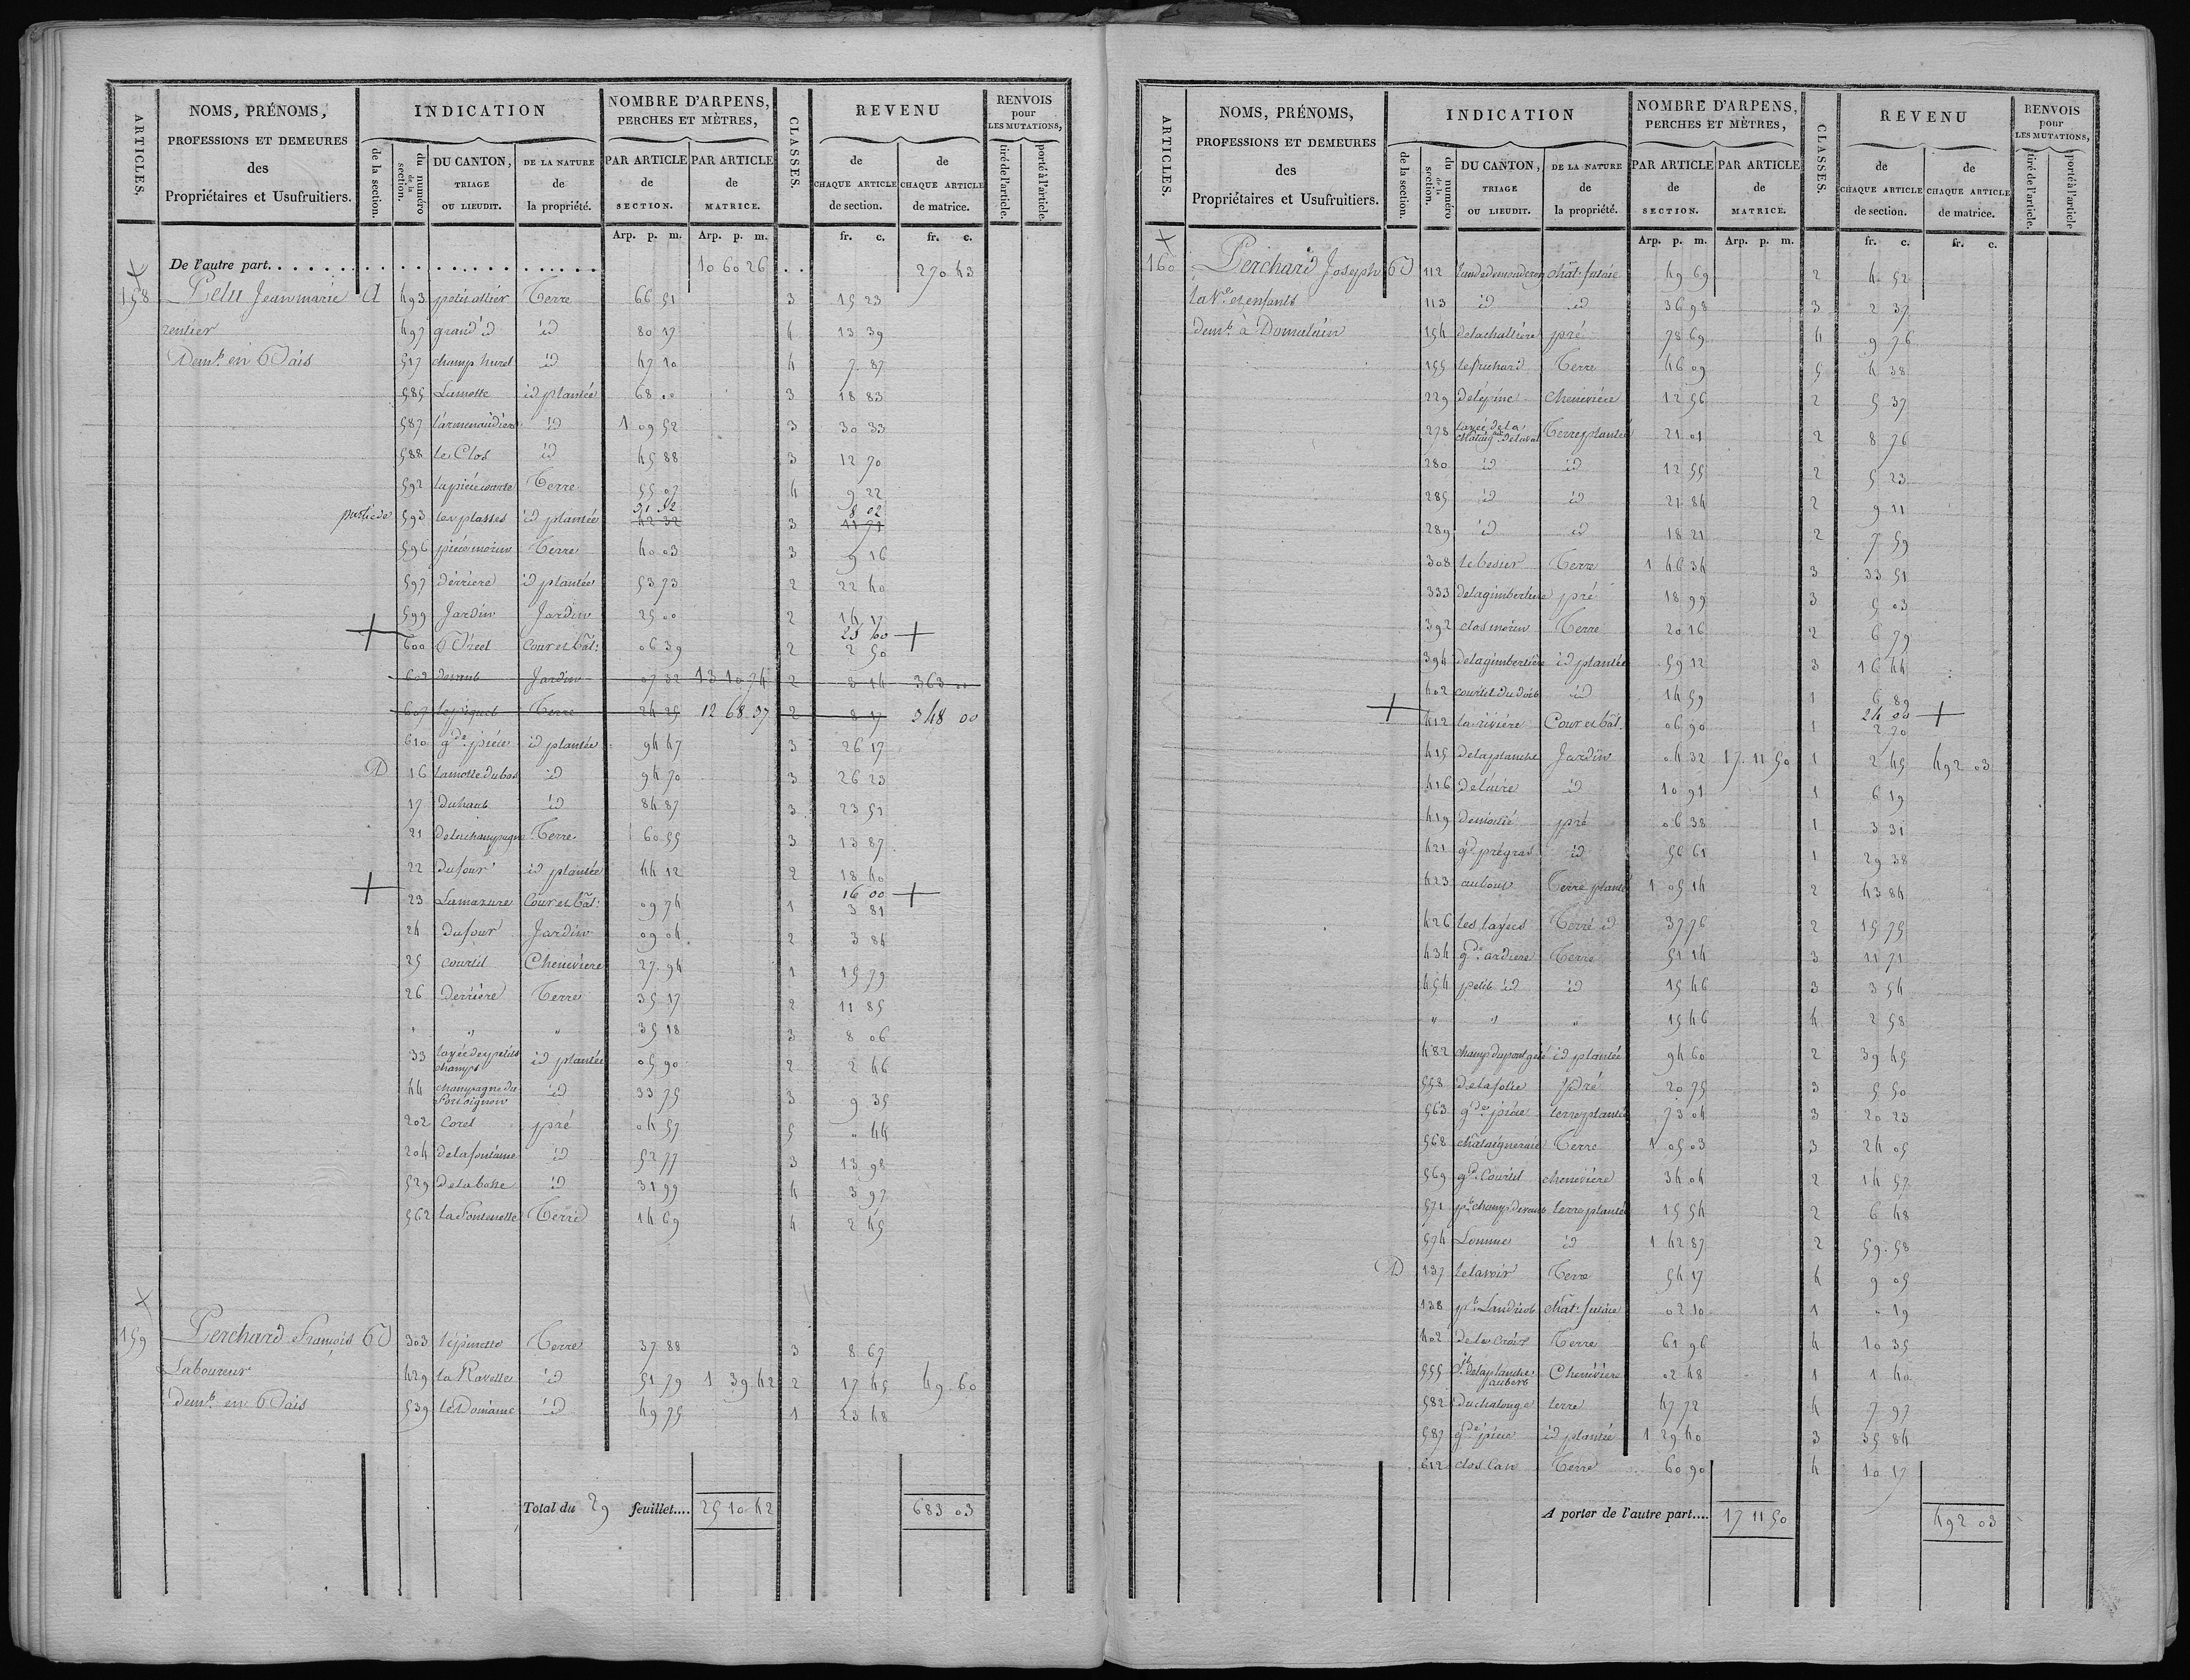 ARTICLES.
NOMS, PRÉNOMS,
PROFESSIONS ET DEMEURES
des
Propriétaires et Usufruitiers.
INDICATION
de la section.
du numéro de la section.
DU CANTON, TRIAGE OU LIEUDIT.
DE LA NATURE de la propriété.
NOMBRE D'ARPENS, PERCHES ET MÈTRES,
PAR ARTICLE de SECTION.
PAR ARTICLE de MATRICE.
CLASSES.
REVENU
de CHAQUE ARTICLE de section.
de CHAQUE ARTICLE de matrice.
RENVOIS pour LES MUTATIONS,
tiré de l'article.
porté à l'article.
Arp. p. m. Arp. p. m. fr. c. fr. c.
De l'autre part 10 60 26 270 43
158 Pelu Jean marie A 493 petit ollier Terre 66 51 3 15 23
rentier 497 grand id id 80 17 4 13 39
Demt. en 517 champ hurel id 47 10 4 7 87
585 Lamotte id plantée 68 00 3 18 83
587 id 1 09 52 3 30 33
588 le Clos id 45 88 3 12 70
592 Terre 55 07 4 9 22
31 52 8 02
partie de 593 les plasses id plantée 42 32 3 11 71
596 pièce morin Terre 40 03 3 9 16
597 dérriere id plantée 53 73 2 22 40
599 Jardin Jardin 25 00 2 14 17
23 60
600 Cour et bât: 06 39 2 2 50
602 devant Jardin 07 32 13 10 74 2 3 14 363 00
607 Terre 24 25 12 68 37 2 8 17 348 00
610 gde pièce id plantée 94 47 3 26 17
D 16 lamotte du bas id 94 70 3 26 23
17 du haut id 84 87 3 23 51
21 de la champagne Terre 60 55 3 13 87
22 Dufour id plantée 44 12 2 18 40
16 00
23 Lamazure Cour et bât: 09 74 1 3 81
24 Dufour Jardin 09 04 2 3 84
25 courtil Chenevière 27 94 1 15 79
26 Derrière Terre 35 17 2 11 85
" " " 35 18 3 8 06
33 layée des petits champs id plantée 05 90 2 2 46
44 champagne du id 33 75 3 9 35
202 Corel pré 04 57 5 " 44
204 de la fontaine id 52 77 3 13 98
529 de la bosse id 31 99 4 3 97
562 la Fontenelle Terre 14 69 4 2 45
159 Perchard François 303 l'épinette Terre 37 88 3 8 67
Laboureur 429 la Ravelle id 51 79 1 39 42 2 17 45 49 60
demt. en 539 le Domaine id 49 75 1 23 48
Total du 29 feuillet.... 25 10 42 683 03
ARTICLES.
NOMS, PRÉNOMS,
PROFESSIONS ET DEMEURES
des
Propriétaires et Usufruitiers.
INDICATION
de la section.
du numéro de la section.
DU CANTON, TRIAGE OU LIEUDIT.
DE LA NATURE de la propriété.
NOMBRE D'ARPENS, PERCHES ET MÈTRES,
PAR ARTICLE de SECTION.
PAR ARTICLE de MATRICE.
CLASSES.
REVENU
de CHAQUE ARTICLE de section.
de CHAQUE ARTICLE de matrice.
RENVOIS pour LES MUTATIONS,
tiré de l'article.
porté à l'article
Arp. p. m. Arp. p. m. fr. c. fr. c.
160 Perchard Joseph 112 chât: futaie 49 69 2 4 52
la Ve et enfants 113 id id 36 98 3 2 37
demt à Domalain 154 pré 78 69 4 9 76
155 Terre 46 09 5 4 38
229 de l'épine chenevière 12 56 2 5 37
278 layée de la Terre plantée 21 01 2 8 76
280 id id 12 55 2 5 23
285 id id 21 84 2 9 11
289 id id 18 21 2 7 59
308 le besier Terre 1 46 34 3 33 51
333 de la gimbertiere pré 18 99 3 5 03
392 clos morin Terre 20 16 2 6 79
394 de la gimbertière id plantée 59 12 3 16 44
402 courtil du dois id 14 59 1 6 89
24 00
412 la rivière Cour et bât: 06 90 1 2 70
415 de la planche Jardin 04 32 17 11 50 1 2 45 492 03
416 de l'aire id 10 91 1 6 19
419 de moitié pré 06 38 1 3 31
421 gd pré gras id 56 61 1 29 38
423 Terre plantée 1 05 14 2 43 84
426 les layées Terre id 37 76 2 15 75
434 gde ardiere Terre 51 14 3 11 71
454 petit id id 15 46 3 3 54
" " " 15 46 4 2 58
482 id plantée 94 60 2 39 45
558 de la folie Pré 20 75 3 5 50
563 gde pièce terre plantée 73 04 3 20 23
568 châtaigneraie Terre 1 05 03 3 24 05
569 gd. Courtil chenevière 34 04 2 14 57
571 pt champ devant terre plantée 15 54 2 6 48
574 Lomme id 1 42 87 2 59 58
D 137 le lavoir Terre 54 17 4 9 05
138 chât: futaie 02 10 1 " 19
402 de la Croix Terre 61 96 4 10 35
555 de la planche aubert Chenévière 02 48 1 1 40
582 du chalonge terre 47 72 4 7 97
587 gde pièce id plantée 1 29 40 3 35 84
612 clos Can Terre 60 90 4 10 17
A porter de l'autre part.... 17 11 50 492 03